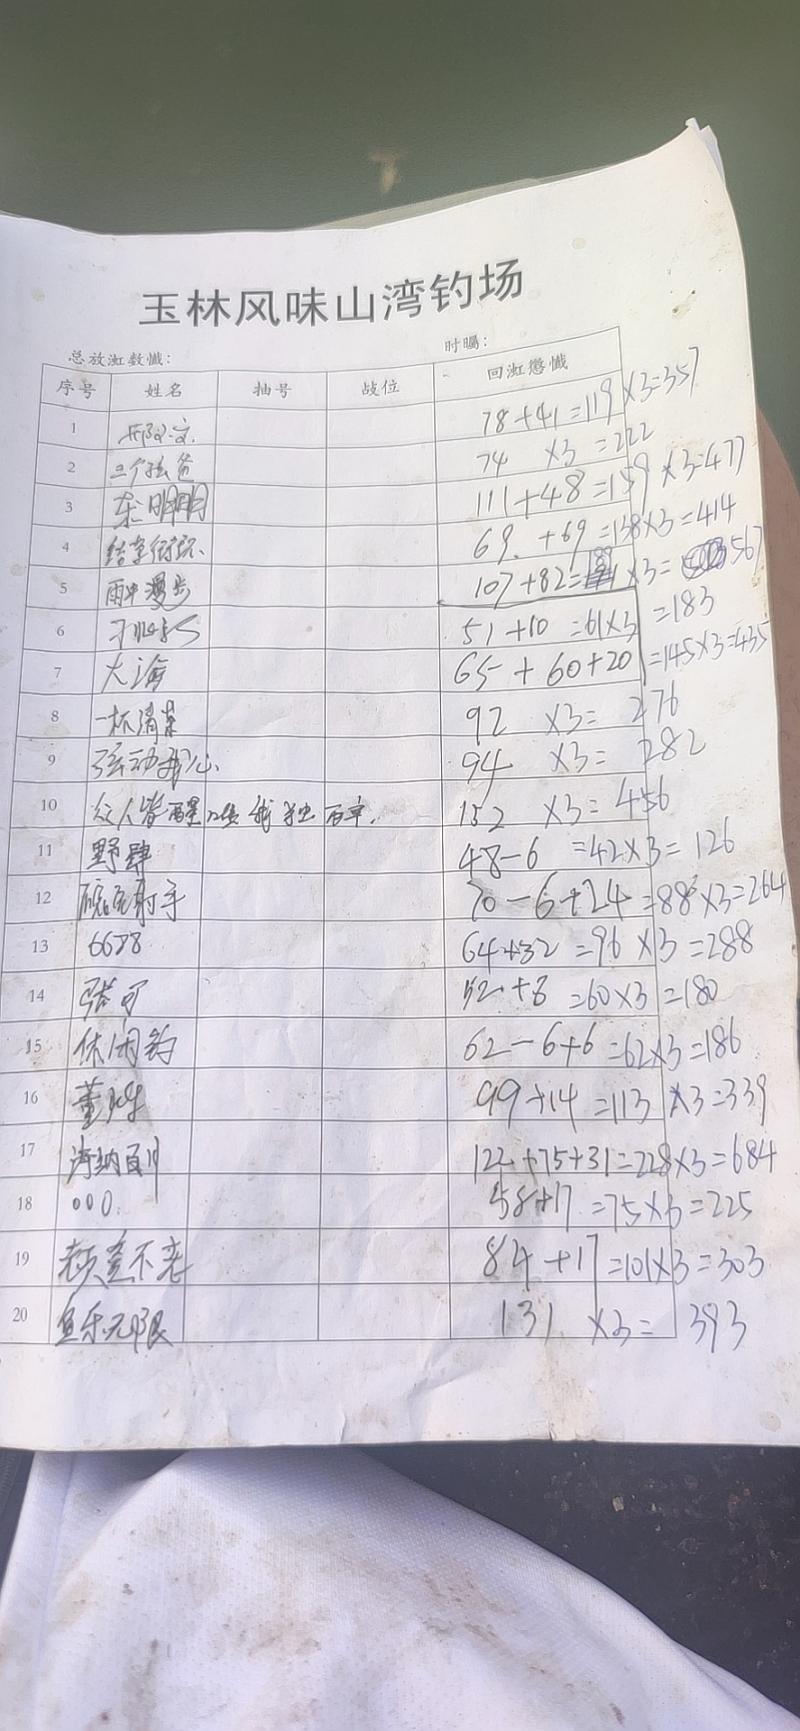 玉林风味山湾钓场
总放渱数懴: 时曯:
序号 姓名 抽号 战位 回渱懲懴
1 78+41=119×3=357
2 三个孩爸 74 ×3 =222
3 东明明 111+48=159×3=477
4 69 +69=138×3=414
5 雨中漫步 107+82= ×3= 567
6 51+10 =61×3 =183
7 大海 65+60+20 =145×3=435
8 一杯清茶 92 ×3= 276
9 弦动我心 94 ×3= 282
10 众人皆醒唯我独醉. 152 ×3= 456
11 野肆 48-6 =42×3= 126
12 射手 70-6+24=88×3=264
13 6678 64+32 =96×3=288
14 张可 52+8 =60×3=180
15 休闲钓 62-6+6=62×3=186
16 董 99+14 =113 ×3=339
17 海纳百川 122+75+31=228×3=684
18 000. 58+17 =75×3=225
19 不老 84+17=101×3=303
20 鱼乐无限 131 ×3= 393